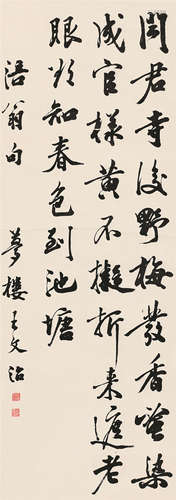 聞君寺後野梅發香蜜染
成宮樣黃不擬折来遮老
眼欲知春色到池塘
涪翁句 夢樓王文治